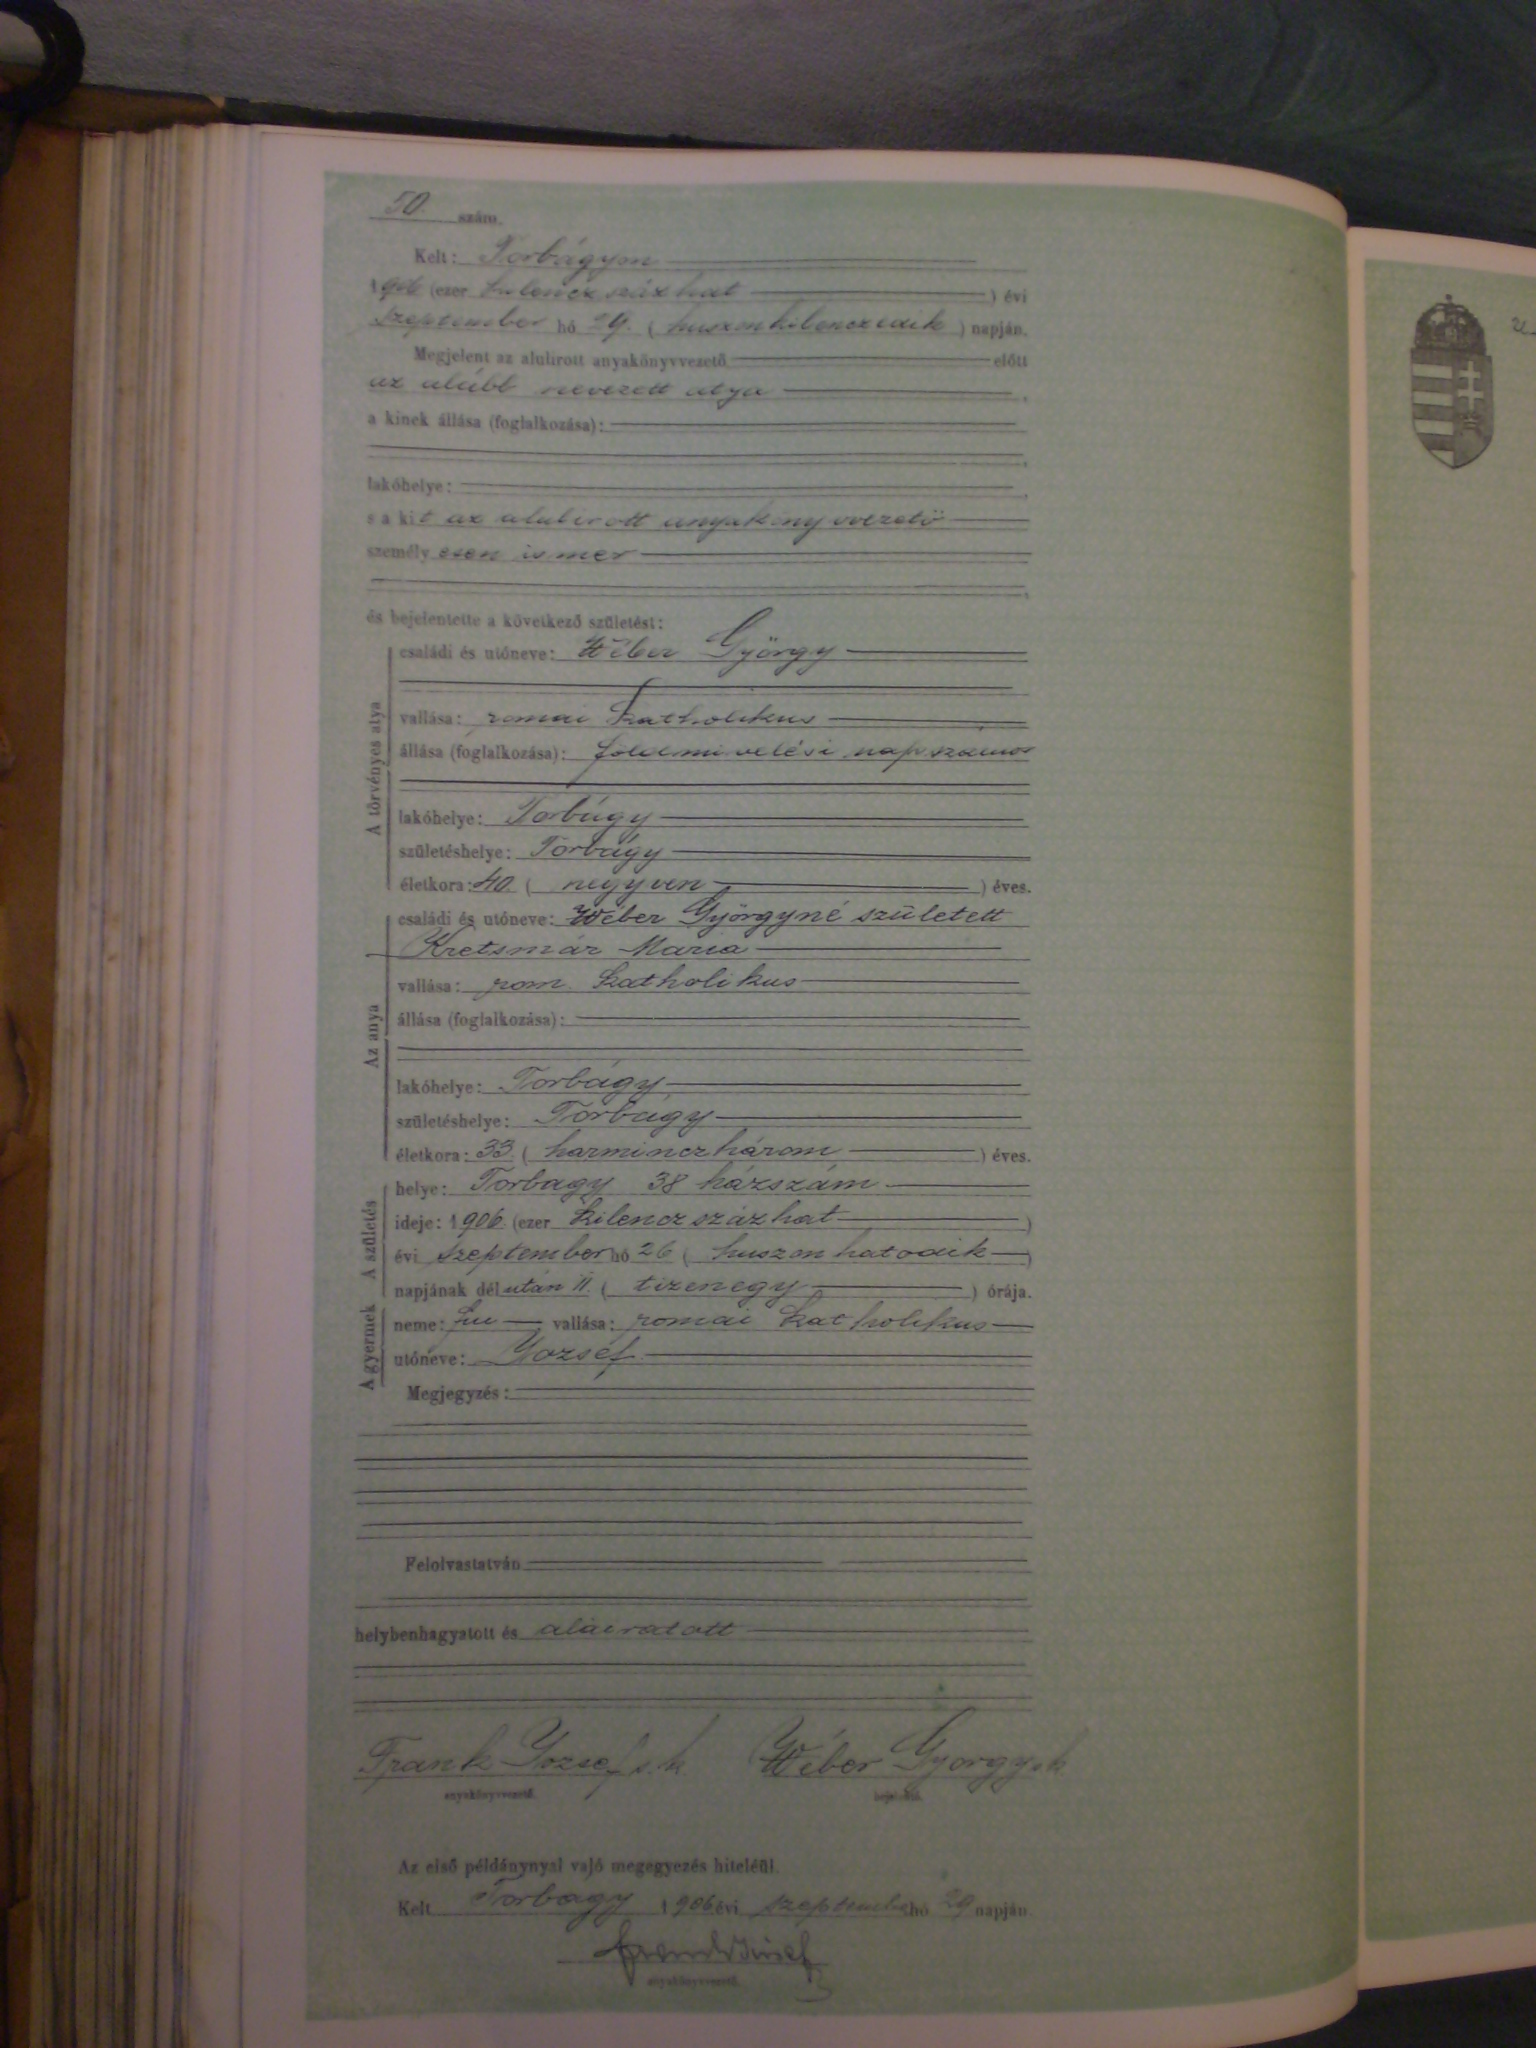 50. szám.
Kelt: Torbágyon
1906 (ezer kilenczszázhat ) évi
szeptember hó 29. ( huszonkilenczedik ) napján.
Megjelent az alulirott anyakönyvvezető előtt
az alább nevezett atya ,
a kinek állása (foglalkozása):
lakóhelye:
s a kit az alulirott anyakönyvvezető
személyesen ismer
és bejelentette a következő születést:
A törvényes atya
családi és utóneve: Wéber György
vallása: romai katholikus
állása (foglalkozása): földmivelési napszámos
lakóhelye: Torbágy
születéshelye: Torbágy
életkora: 40. ( negyven ) éves.
Az anya
családi és utóneve: Wéber Györgyné született
Kretsmár Maria
vallása: rom. katholikus
állása (foglalkozása):
lakóhelye: Torbágy
születéshelye: Torbágy
életkora: 33. ( harminczhárom ) éves.
A születés
helye: Torbágy 38 házszám
ideje: 1906. (ezer kilenczszázhat )
évi szeptember hó 26 ( huszonhatodik )
napjának délután 11. ( tizenegy ) órája.
A gyermek
neme: fiu , vallása: romai katholikus
utóneve: József
Megjegyzés:
Felolvastatván
helybenhagyatott és aláiratott
Frank József s. k Wéber György sk
anyakönyvvezető. bejelentő.
Az első példánynyal való megegyezés hiteléül.
Kelt Torbágy 1906 évi szeptember hó 29 napján.
Frank József
anyakönyvvezető.